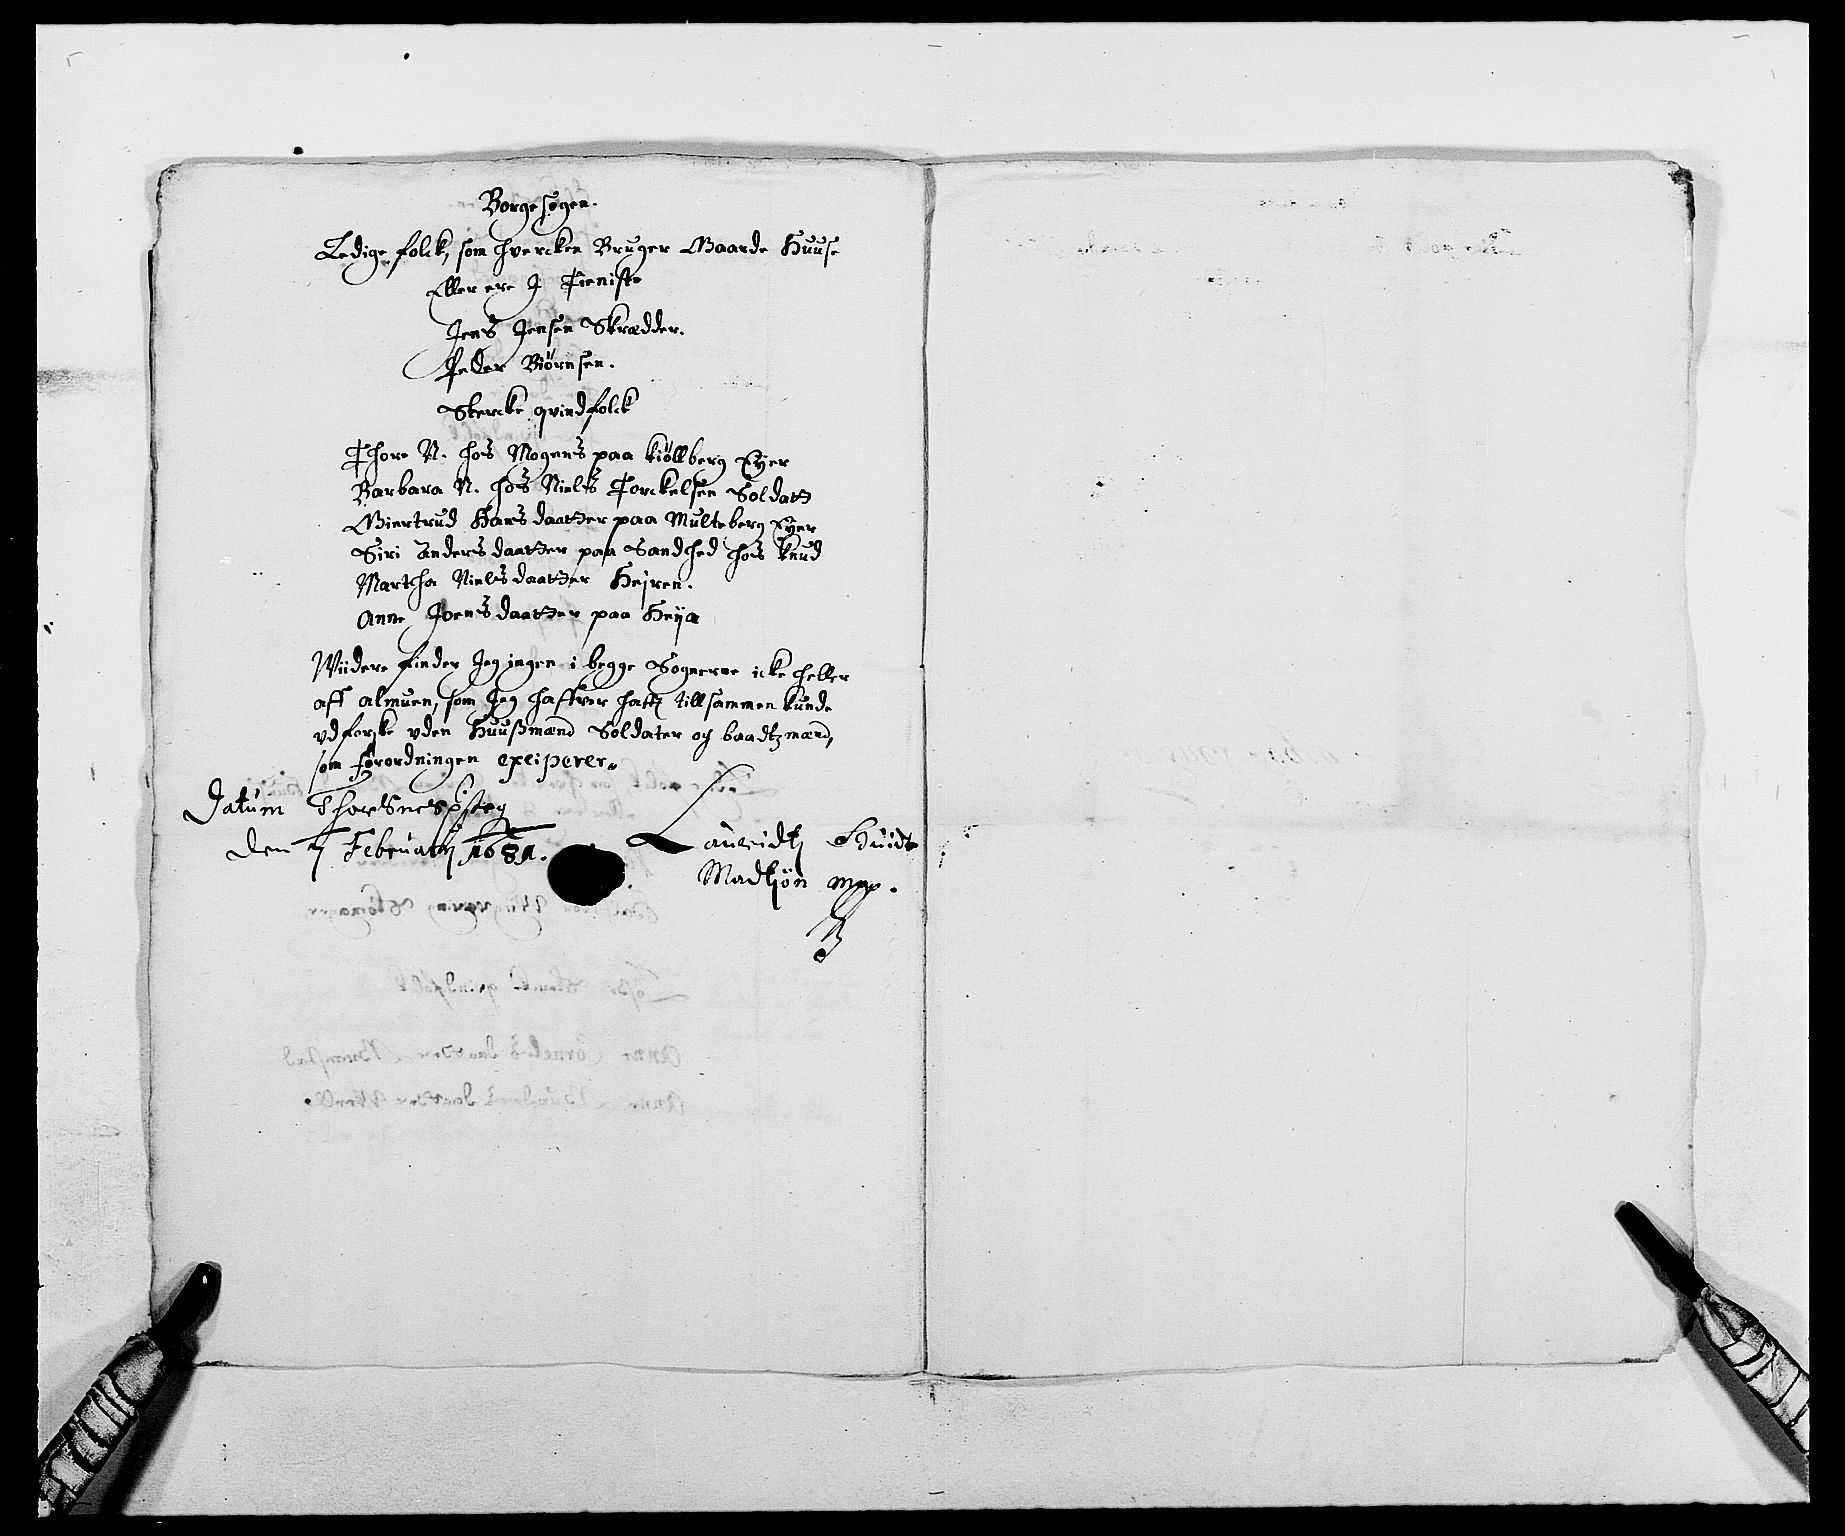 Borge sogen.
Ledige folck, som hvercken Bruger Gaarde Huuse
Eller ere J Tieniste
Jens Jensen Skrædder.
Peder Biørnsen.
Stercke qvindfolck
Thore N. hos Mogens paa kiöllberg Eyer
Barbara N. hos Niels Torckelsen Soldatt
Giertrud Hansdaatter paa Multeberg Eyer
Siri Andersdaatter paa Sandhed hos knud
Martha Nielsdaatter Hejren.
Anne Joensdaatter paa Heija
Wiidere finder Jeg ingen i begge Sognerne icke heller
aff almuen, som Jeg haffver hatt tillsammen kunde
udforske uden Huußmænd Soldater og baadtzmænd,
som forordningen exciperer
Datum Thorsnes
den 7 Februarij 1681.
Lauridtz Huidt